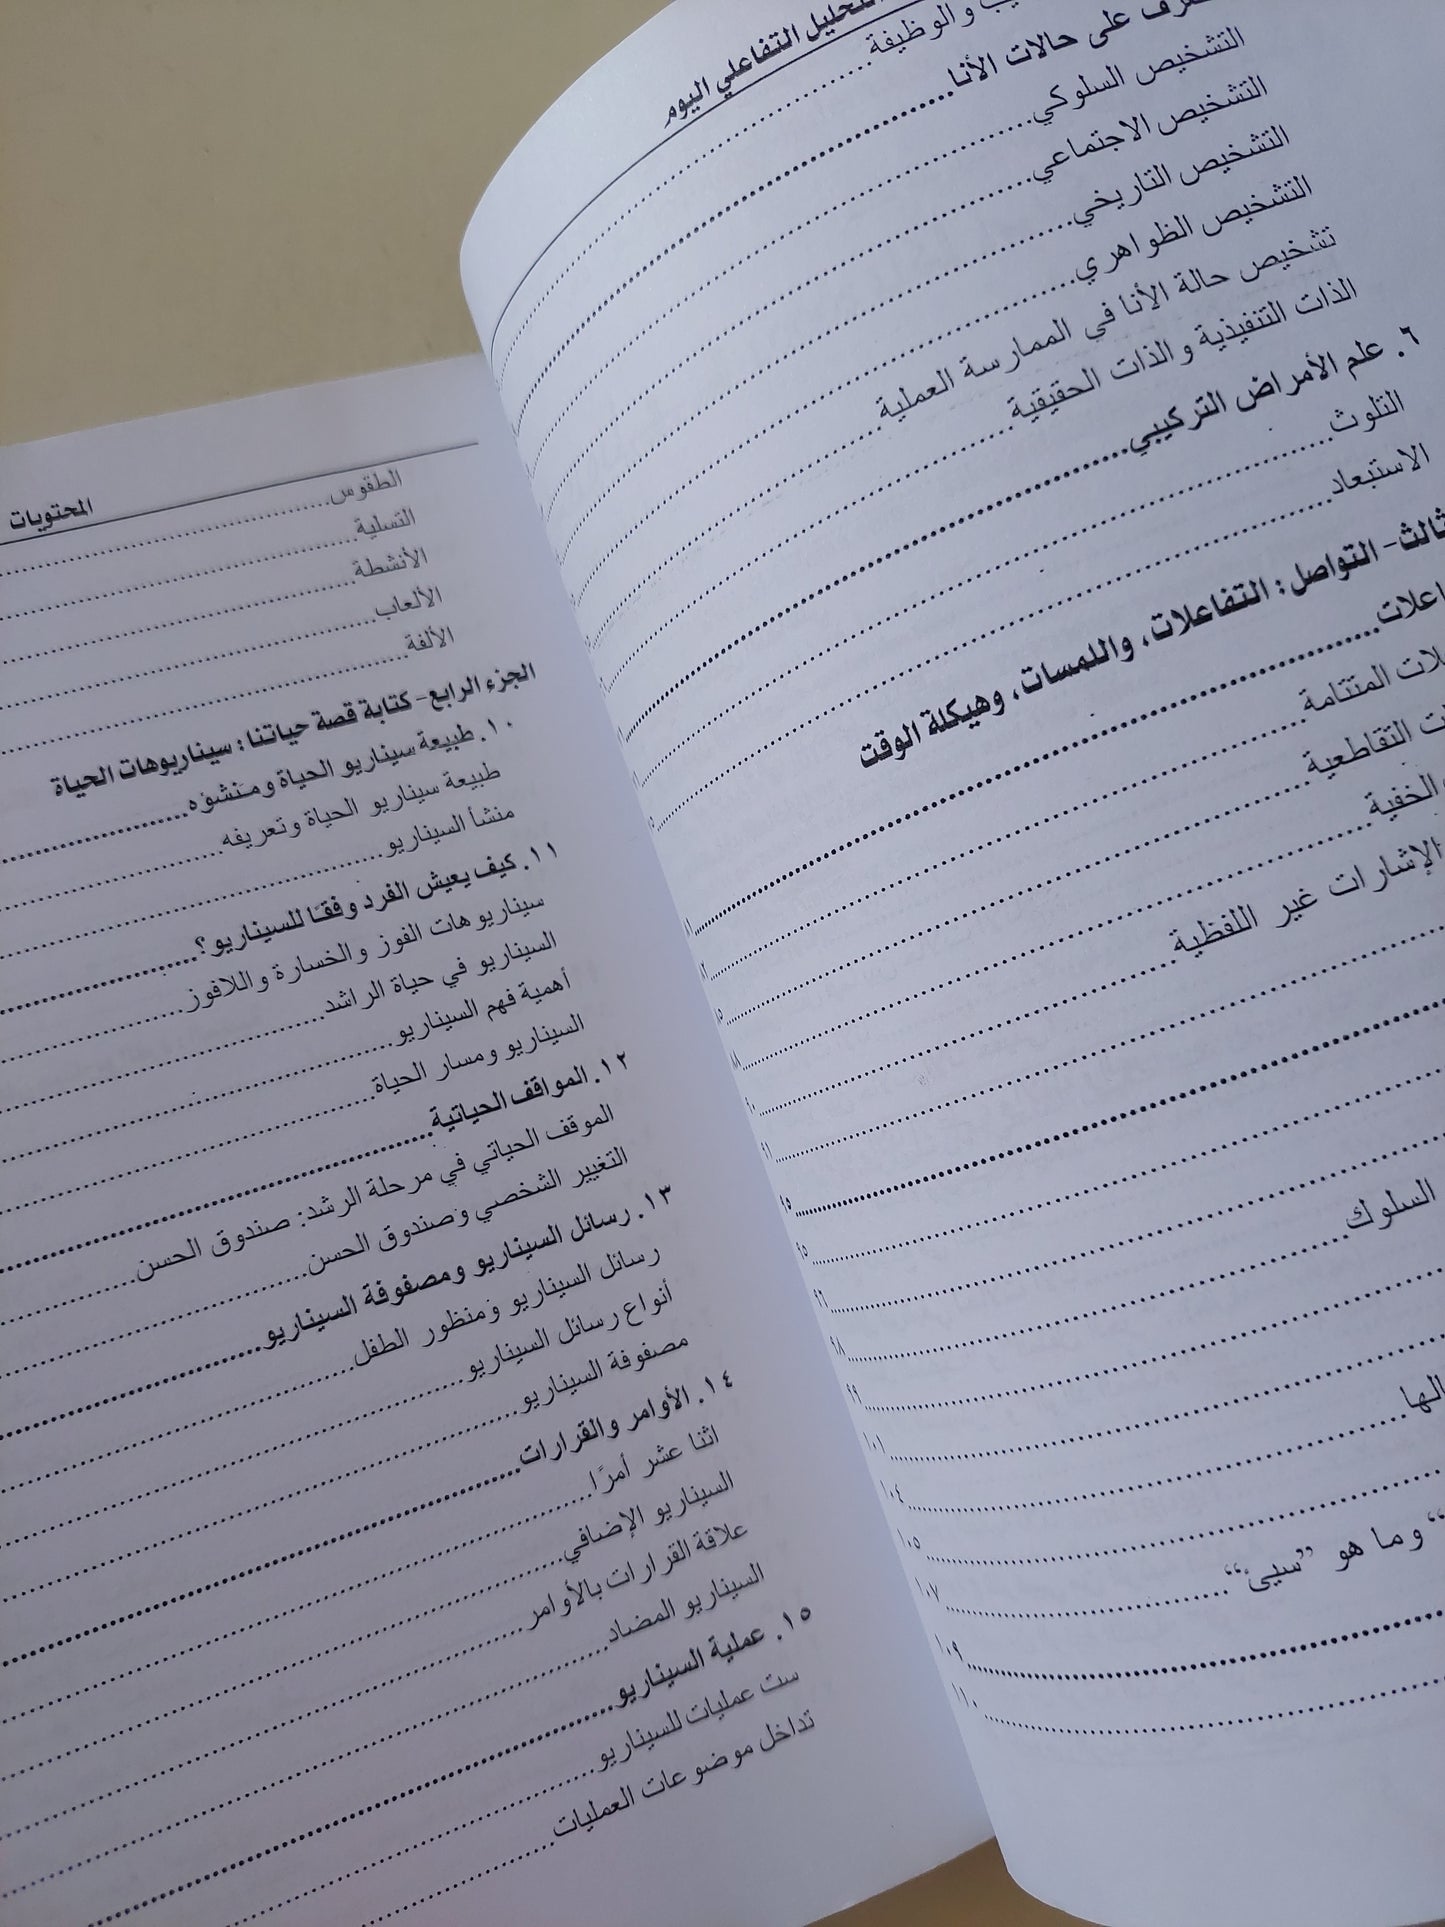 التحليل التفاعلي اليوم
والوظيفة
على حالات الأنا
التشخيص السلوكي
التشخيص الاجتماعي
التشخيص التاريخي
التشخيص الظواهري
تشخيص حالة الأنا في الممارسة العملية
الذات التنفيذية والذات الحقيقية
٦. علم الأمراض التركيبي
التلوث
الاستبعاد
التواصل: التفاعلات، واللمسات، وهيكلة الوقت
المتتامة
التقاطعية
الخفية
الإشارات غير اللفظية
٩٥
السلوك
٩٨
٩٩
١٠١
١٠٤
١٠٥
“ وما هو ”سيئ“ ١٠٧
١٠٩
١١٠
المحتويات
الطقوس
التسلية
الأنشطة
الألعاب
الألفة
الجزء الرابع- كتابة قصة حياتنا: سيناريوهات الحياة
١٠. طبيعة سيناريو الحياة ومنشؤه
طبيعة سيناريو الحياة وتعريفه
منشأ السيناريو
١١. كيف يعيش الفرد وفقًا للسيناريو؟
سيناريوهات الفوز والخسارة واللافوز
السيناريو في حياة الراشد
أهمية فهم السيناريو
السيناريو ومسار الحياة
١٢. المواقف الحياتية
الموقف الحياتي في مرحلة الرشد: صندوق الحسن
التغيير الشخصي وصندوق الحسن
١٣. رسائل السيناريو ومصفوفة السيناريو
رسائل السيناريو ومنظور الطفل
أنواع رسائل السيناريو
مصفوفة السيناريو
١٤. الأوامر والقرارات
اثنا عشر أمرًا
السيناريو الإضافي
علاقة القرارات بالأوامر
السيناريو المضاد
١٥. عملية السيناريو
ست عمليات للسيناريو
تداخل موضوعات العمليات